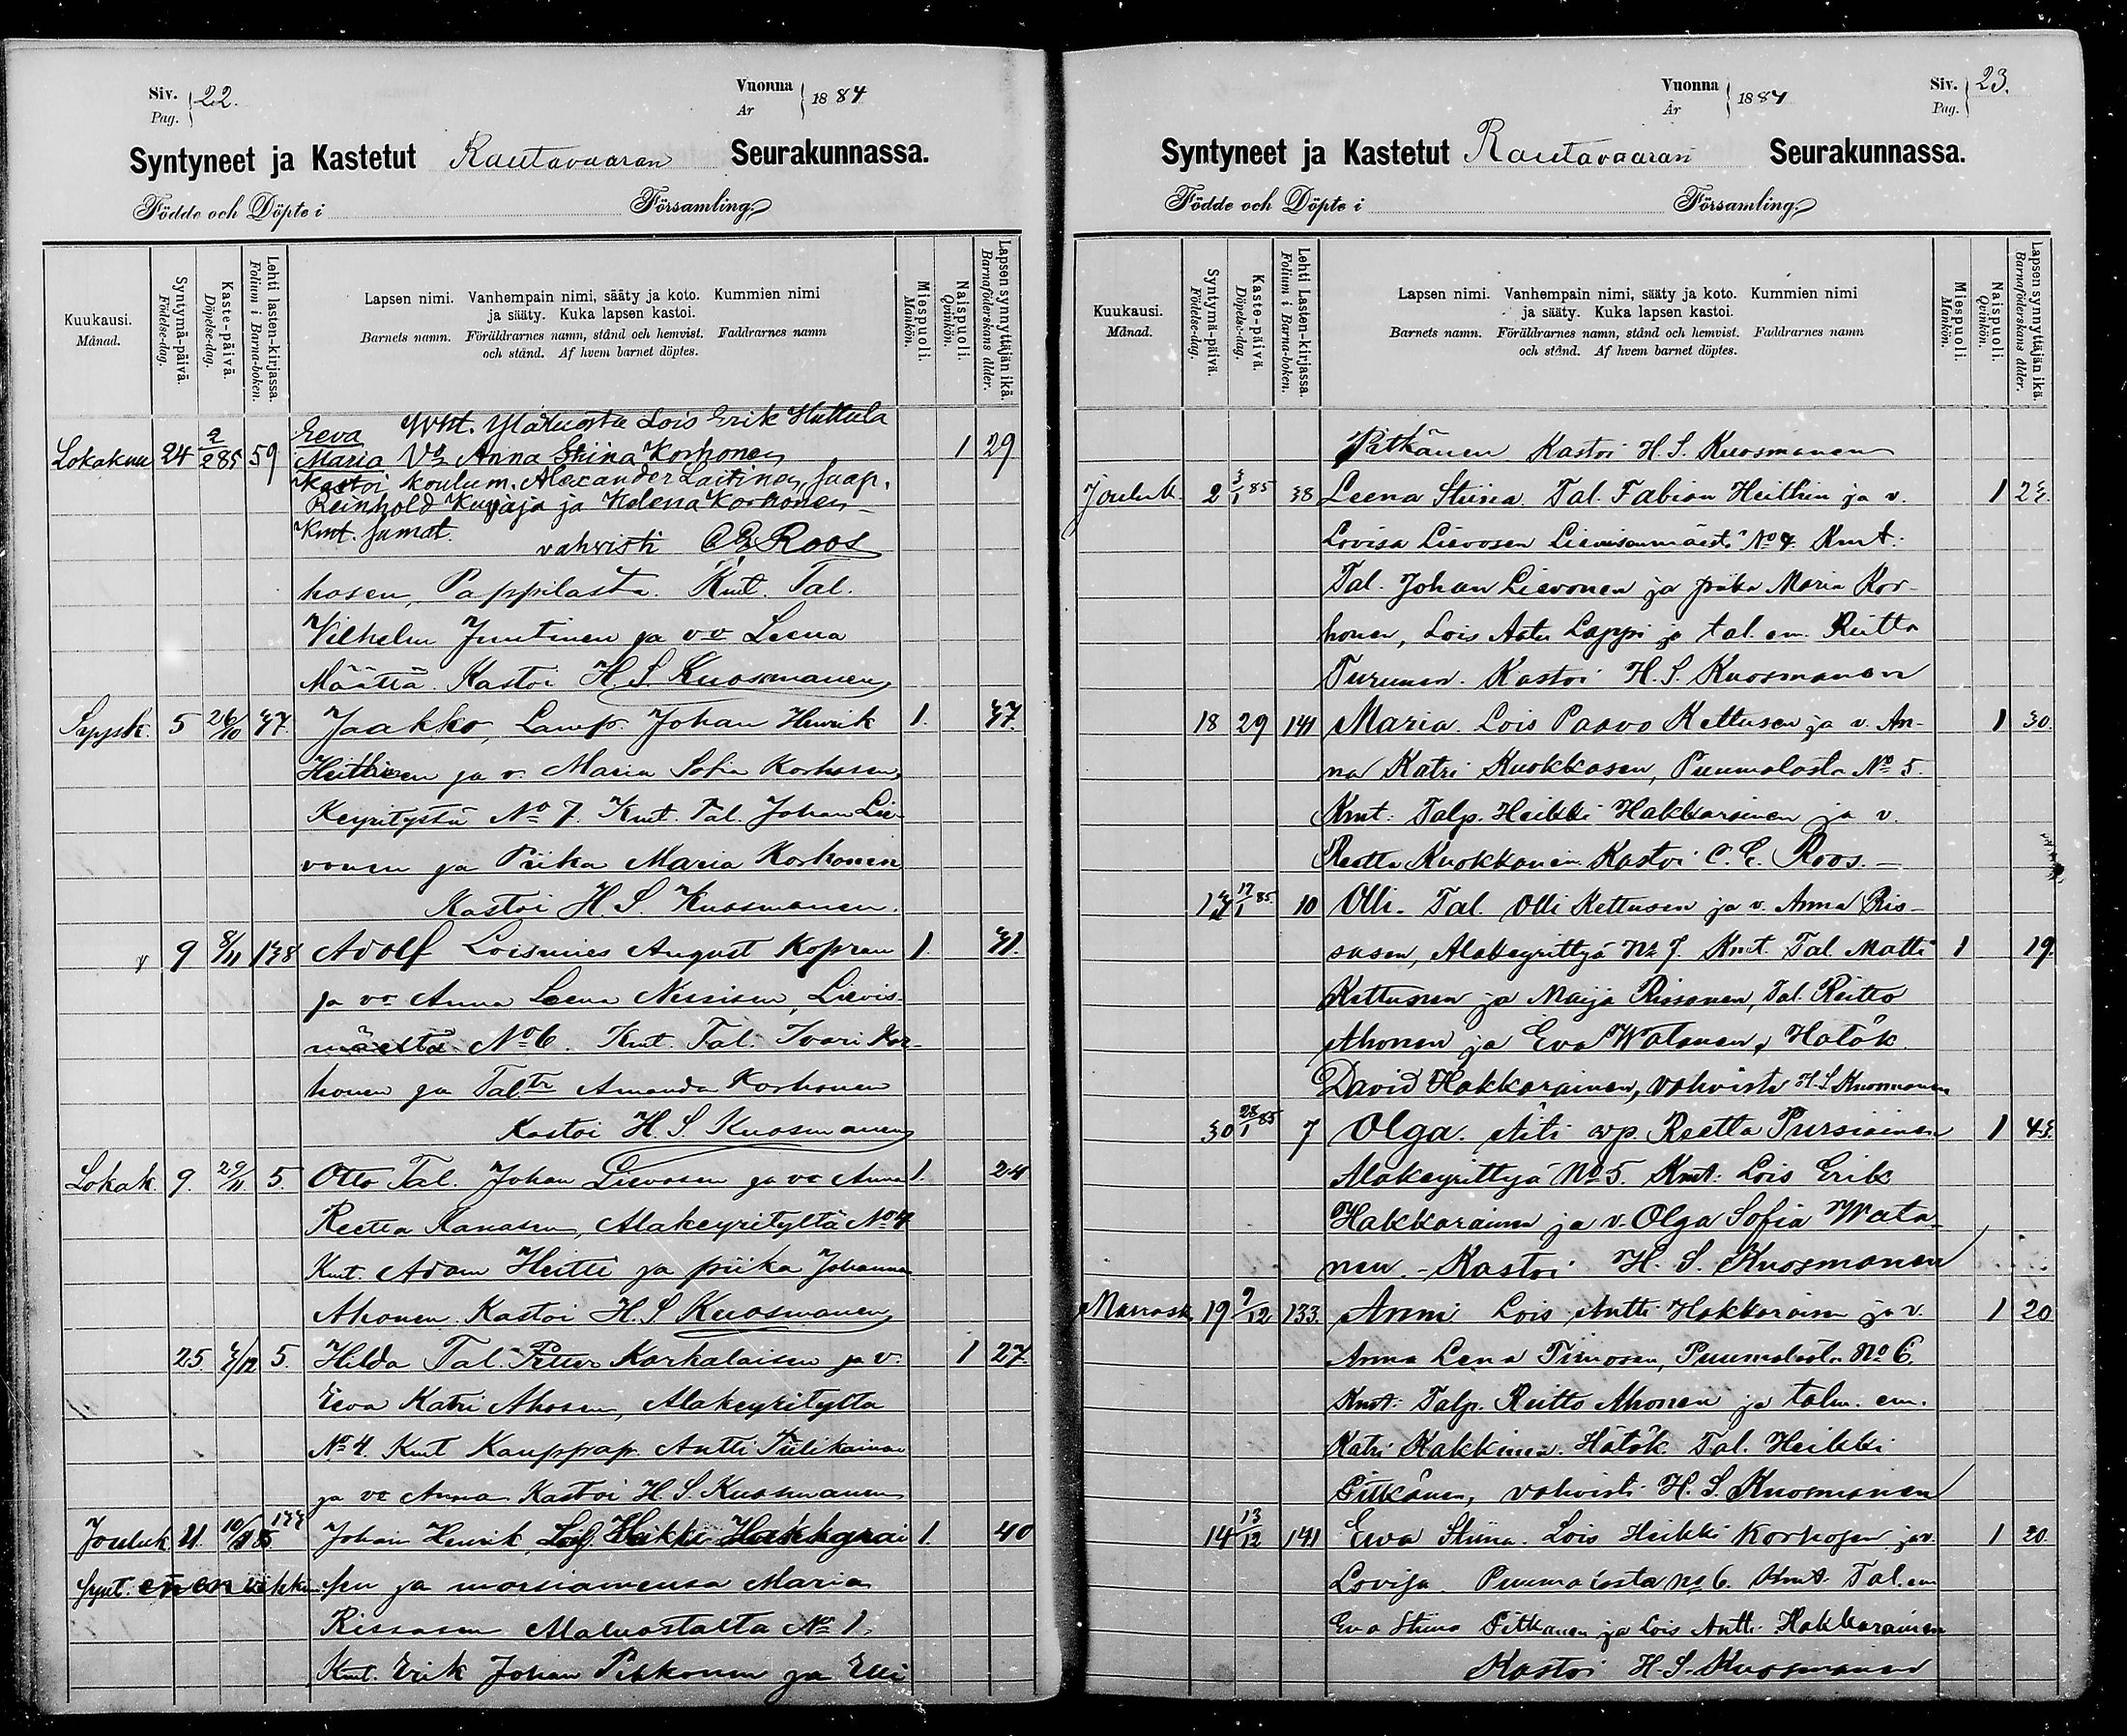 Siv. 22.
Pag.
Vuonna 1884
År
Syntyneet ja Kastetut Rautavaaran Seurakunnassa.
Födde och Döpte i Församling.
Kuukausi.
Månad.
Syntymä-päivä.
Födelse-dag.
Kaste-päivä.
Döpelse-dag.
Lehti lasten-kirjassa.
Folium i Barna-boken.
Lapsen nimi. Vanhempain nimi, sääty ja koto. Kummien nimi
ja sääty. Kuka lapsen kastoi.
Barnets namn. Föräldrarnes namn, stånd och hemvist. Faddrarnes namn
och stånd. Af hvem barnet döptes.
Miespuoli.
Mankön.
Naispuoli.
Qvinkön.
Lapsen synnyttäjän ikä.
Barnaföderskans ålder.
Eeva Lois Erik Huttula
Lokakuu 24 2/2 85 59 Maria Vo Anna Stiina Korhonen 1 29
Kastoi koulum. Alexander Laitinen, Jaap.
Reinhold Kuvaja ja Helena Korhonen
Kmt. samat. vahvisti C E Roos
hosen, Pappilasta. Kmt. Tal.
Vilhelm Juutinen ja vo Leena
Määttä. Kastoi H. S. Kuosmanen
Syysk. 5 26/10 37. Jaakko, Lamp. Johan Henrik 1. 37.
Heittinen ja v. Maria Sofia Korhosen,
Keyritystä No 7. Kmt. Tal. Johan Lie-
vonen ja Piika Maria Korhonen
Kastoi H. S. Kuosmanen.
9 8/11 138 Adolf Loismies August Kopran 1. 31.
ja vo Anna Leena Nissisen, Lievis-
mäeltä No 6. Kmt. Tal. Ivari Kor-
honen ja Tal.tr Amanda Korhonen
Kastoi H. S. Kuosmanen
Lokak. 9. 29/11. 5. Otto Tal. Johan Lievosen ja vo Anna 1. 24
Reetta Kanasen, Alakeyrityltä No 4
Kmt. Adam Heitti ja piika Johanna
Ahonen. Kastoi H. S. Kuosmanen
25. 3/12 5. Hilda Tal. Petter Karhalaisen ja v. 1 27.
Eeva Katri Ahosen, Alakeyrityltä
No 4. Kmt Kauppap. Antti Tiilikainen
ja vo Anna. Kastoi H. S. Kuosmanen
Jouluk 11. 10/1 85 133 Johan Henrik, Lois Heikki Hakkarai 1. 40
Synt. ennen vihki sen ja morsiamensa Maria
Rissasen Alaluostalta No 1.
Kmt. Erik Johan Pitkonen ja Elli
Siv. 23.
Pag.
Vuonna 1884
År
Syntyneet ja Kastetut Rautavaaran Seurakunnassa.
Födde och Döpte i Församling.
Kuukausi.
Månad.
Syntymä-päivä.
Födelse-dag.
Kaste-päivä.
Döpelse-dag.
Lehti Lasten-kirjassa.
Folium i Barna-boken.
Lapsen nimi. Vanhempain nimi, sääty ja koto. Kummien nimi
ja sääty. Kuka lapsen kastoi.
Barnets namn. Föräldrarnes namn, stånd och hemvist. Faddrarnes namn
och stånd. Af hvem barnet döptes.
Miespuoli.
Mankön.
Naispuoli.
Qvinkön.
Lapsen synnyttäjän ikä.
Barnaföderskans ålder.
Pitkänen Kastoi H. S. Kuosmanen
Jouluk. 2 3/1 85 38 Leena Stiina. Tal. Fabian Heittin ja v. 1 23.
Lovisa Lievosen Lievisenmäestä No 4. Kmt.
Tal. Johan Lievonen ja piika Maria Kor-
honen, Lois Aatu Lappi ja tal. em. Reitta
Turunen. Kastoi H. S. Kuosmanen
18 29 141 Maria. Lois Paavo Kettusen ja v. An- 1 30.
na Katri Kuokkasen, Puumalasta No 5.
Kmt. Talp. Heikki Hakkarainen ja v.
Reetta Kuokkanen. Kastoi C. E. Roos.
13 17/1 85. 10 Olli. Tal. Olli Kettusen ja v. Anna Ris-
sasen, Alakeyrittyä No 7. Kmt. Tal. Matti 1 19.
Kettunen ja Maija Rissanen, Tal. Reitto
Ahonen ja Eva Watanen, Hätäk.
David Hakkarainen, vahvisti H. S. Kuosmanen
30 28/1 85 7 Olga. Äiti Reetta Pursiainen 1 43.
Alakeyrittyä No 5. Kmt. Lois Erik
Hakkarainen ja v. Olga Sofia Wata-
nen. Kastoi H. S. Kuosmanen
Marrask 19 9/12 133. Anni Lois Antti Hakkaraisen ja v. 1 20
Anna Lena Timosen, Puumalasta No 6.
Kmt. Talp. Reitto Ahonen ja talon em.
Katri Kakkinen. Hätäk. Tal. Heikki
Pitkänen, vahvisti H. S. Kuosmanen
14 13/12 141 Ewa Stiina. Lois Heikki Korhosen ja v. 1 20.
Lovisa. Puumalasta no 6. Kmt. Tal. em
Eva Stiina Pitkänen ja Lois Antti Hakkarainen
Kastoi H. S. Kuosmanen